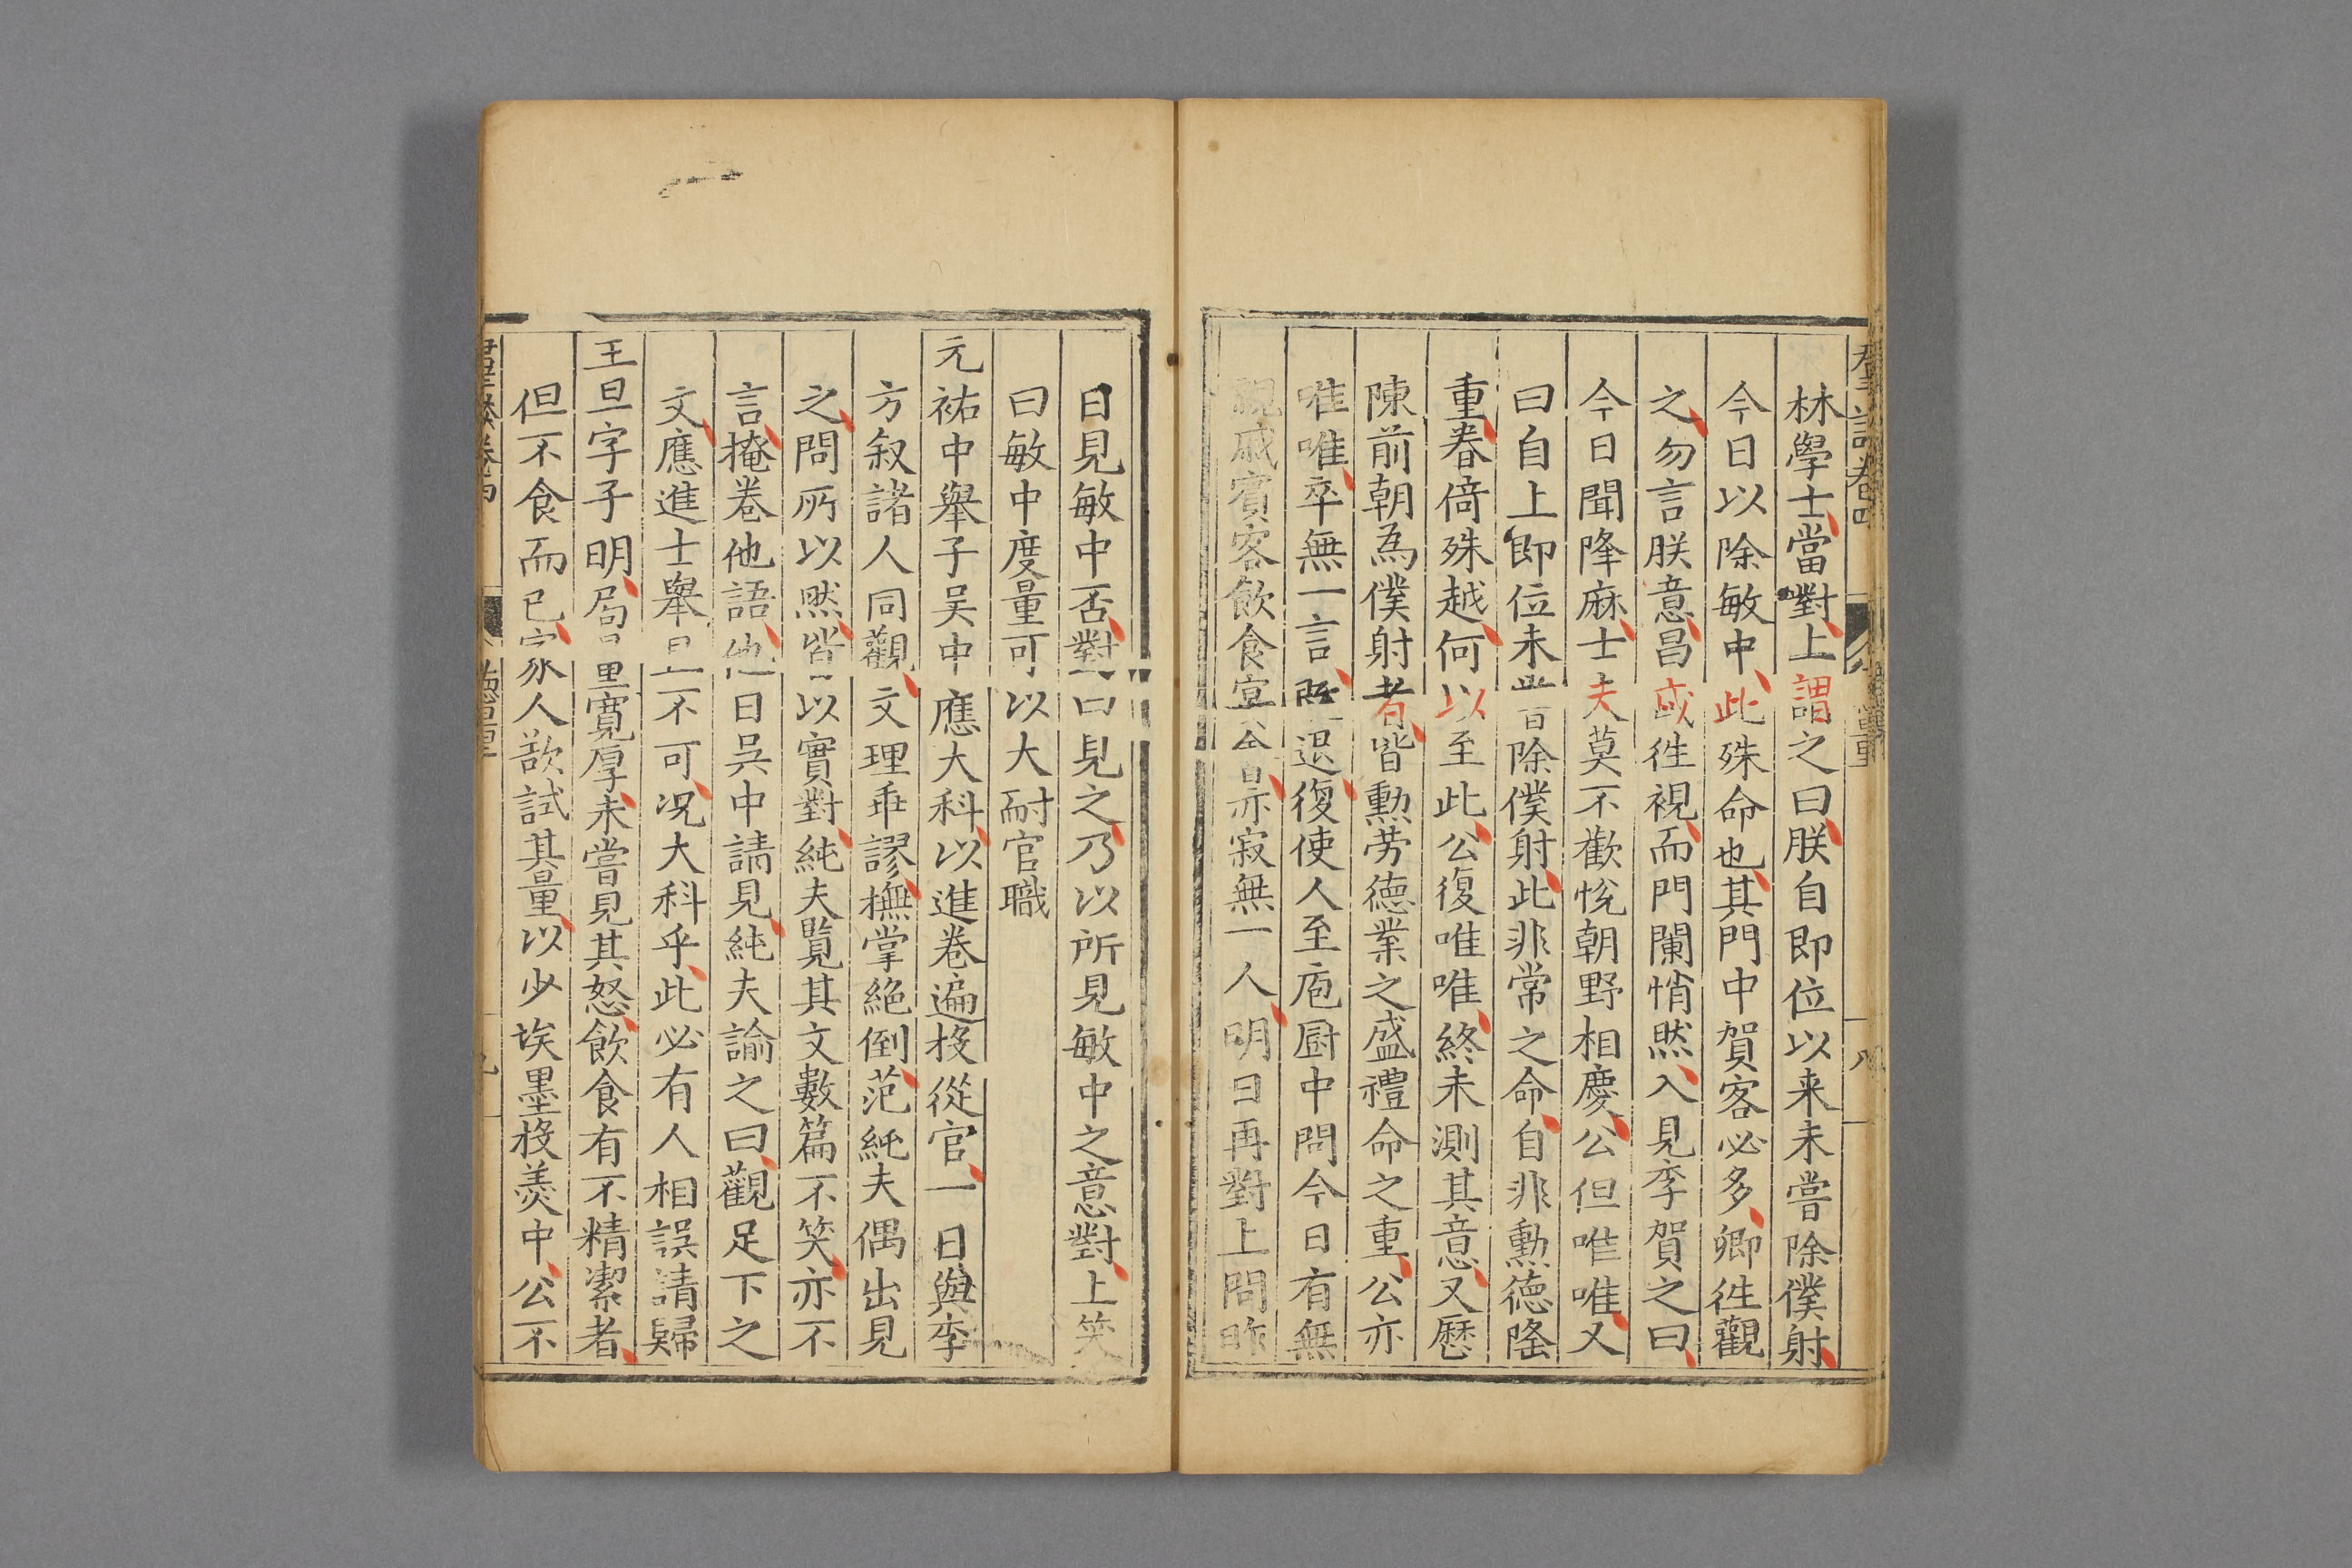 林學士當對上謂之曰朕自即位以来未嘗除僕射
今日以除敏中此殊命也其門中賀客必多卿徃觀
之勿言朕意昌或徃視而門闌悄然入見李賀之曰
今日聞降麻士夫莫不歡悅朝野相慶公但唯唯又
曰自上即位未 除僕射此非常之命自非勳德隆
重眷倚殊越何以至此公復唯唯終未測其意又歷
陳前朝為僕射者皆勳勞德業之盛禮命之重公亦
唯唯卒無一言既退復使人至庖厨中問今日有無
親戚賓客飲食宴 亦寂無一人明日再對上問昨
日見敏中否對曰見之乃以所見敏中之意對上笑
曰敏中度量可以大耐官職
元祐中舉子吴中應大科以進卷遍投從官一日與李
方叙諸人同觀文理乖謬撫掌絕倒范純夫偶出見
之問所以然皆以實對純夫覽其文數篇不笑亦不
言掩卷他語他日吳中請見純夫諭之曰觀足下之
文應進士舉且不可况大科乎此必有人相誤請歸
王旦字子明局量寬厚未嘗見其怒飲食有不精潔者
但不食而已家人欲試其量以少埃墨投羹中公不